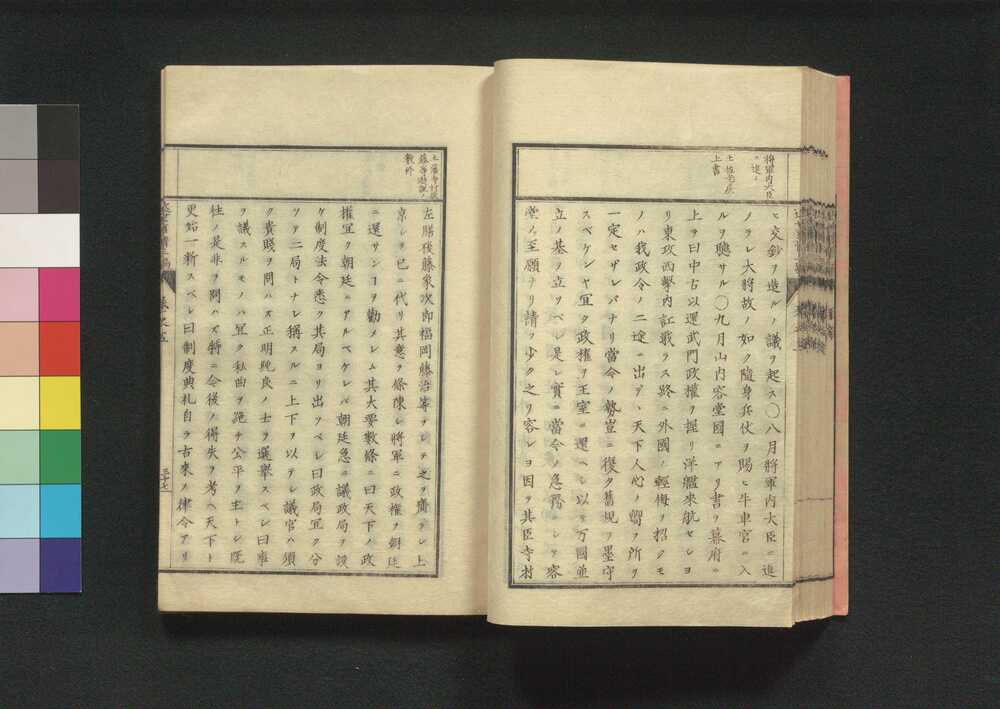 將軍内大臣
ニ進ム
土佐老侯
上書
ヒ交鈔ヲ造ルノ議ヲ起ス〇八月將軍内大臣ニ進
ノラレ大將故ノ如ク隨身兵仗ヲ賜ヒ牛車宮ニ入
ルヲ聽サル〇九月山内容堂國ニアリ書ヲ幕府ニ
上ヲ曰中古以還武門政權ヲ握リ洋艦來航セシヨ
リ東攻西擊内訌戢ラス路ニ外國ノ輕侮ヲ招クモ
ノハ我政令ノ二途ニ出デ丶天下人心ノ嚮ヲ所ヲ
一定セザレバナリ當今ノ勢豈ニ復タ舊規ヲ墨守
スベケンヤ宜ク政權ヲ王室ニ還ヘシ以ヲ万國並
立ノ基ヲ立ツベシ是レ實ニ當今ノ急務ニシヲ容
堂ノ至願ナリ請ヲ少ク之リ容レヨ因ヲ其臣寺村
土藩寺村後
藤等游說ノ
數件
左膳後藤象次郎福岡藤治等ヲシテ之ヲ齎ラシ上
京シヲ已ニ代リ其意ヲ條陳シ將軍ニ政權ヲ朝廷
ニ還サン１ヲ勸メシム其大要數條ニ曰天下ノ政
權宜ク朝廷ニアルベケレバ朝廷急ニ議政局ヲ設
ケ制度法令悉ク其局ヨリ出ツベシ曰政局宜ク分
ツヲ二局トナシ稱スルニ上下ヲ以テシ議官ハ須
ク貴賤ヲ問ハズ正明純良ノ士ヲ選舉スベシ曰事
ヲ議スルモノハ宜ク私曲ヲ去テ公平ヲ主トシ既
往ノ是非ヲ問ハズ特ニ今後ノ得失ヲ考ヘ天下ト
更始一新スベシ曰制度典礼自ラ古來ノ律令アリ